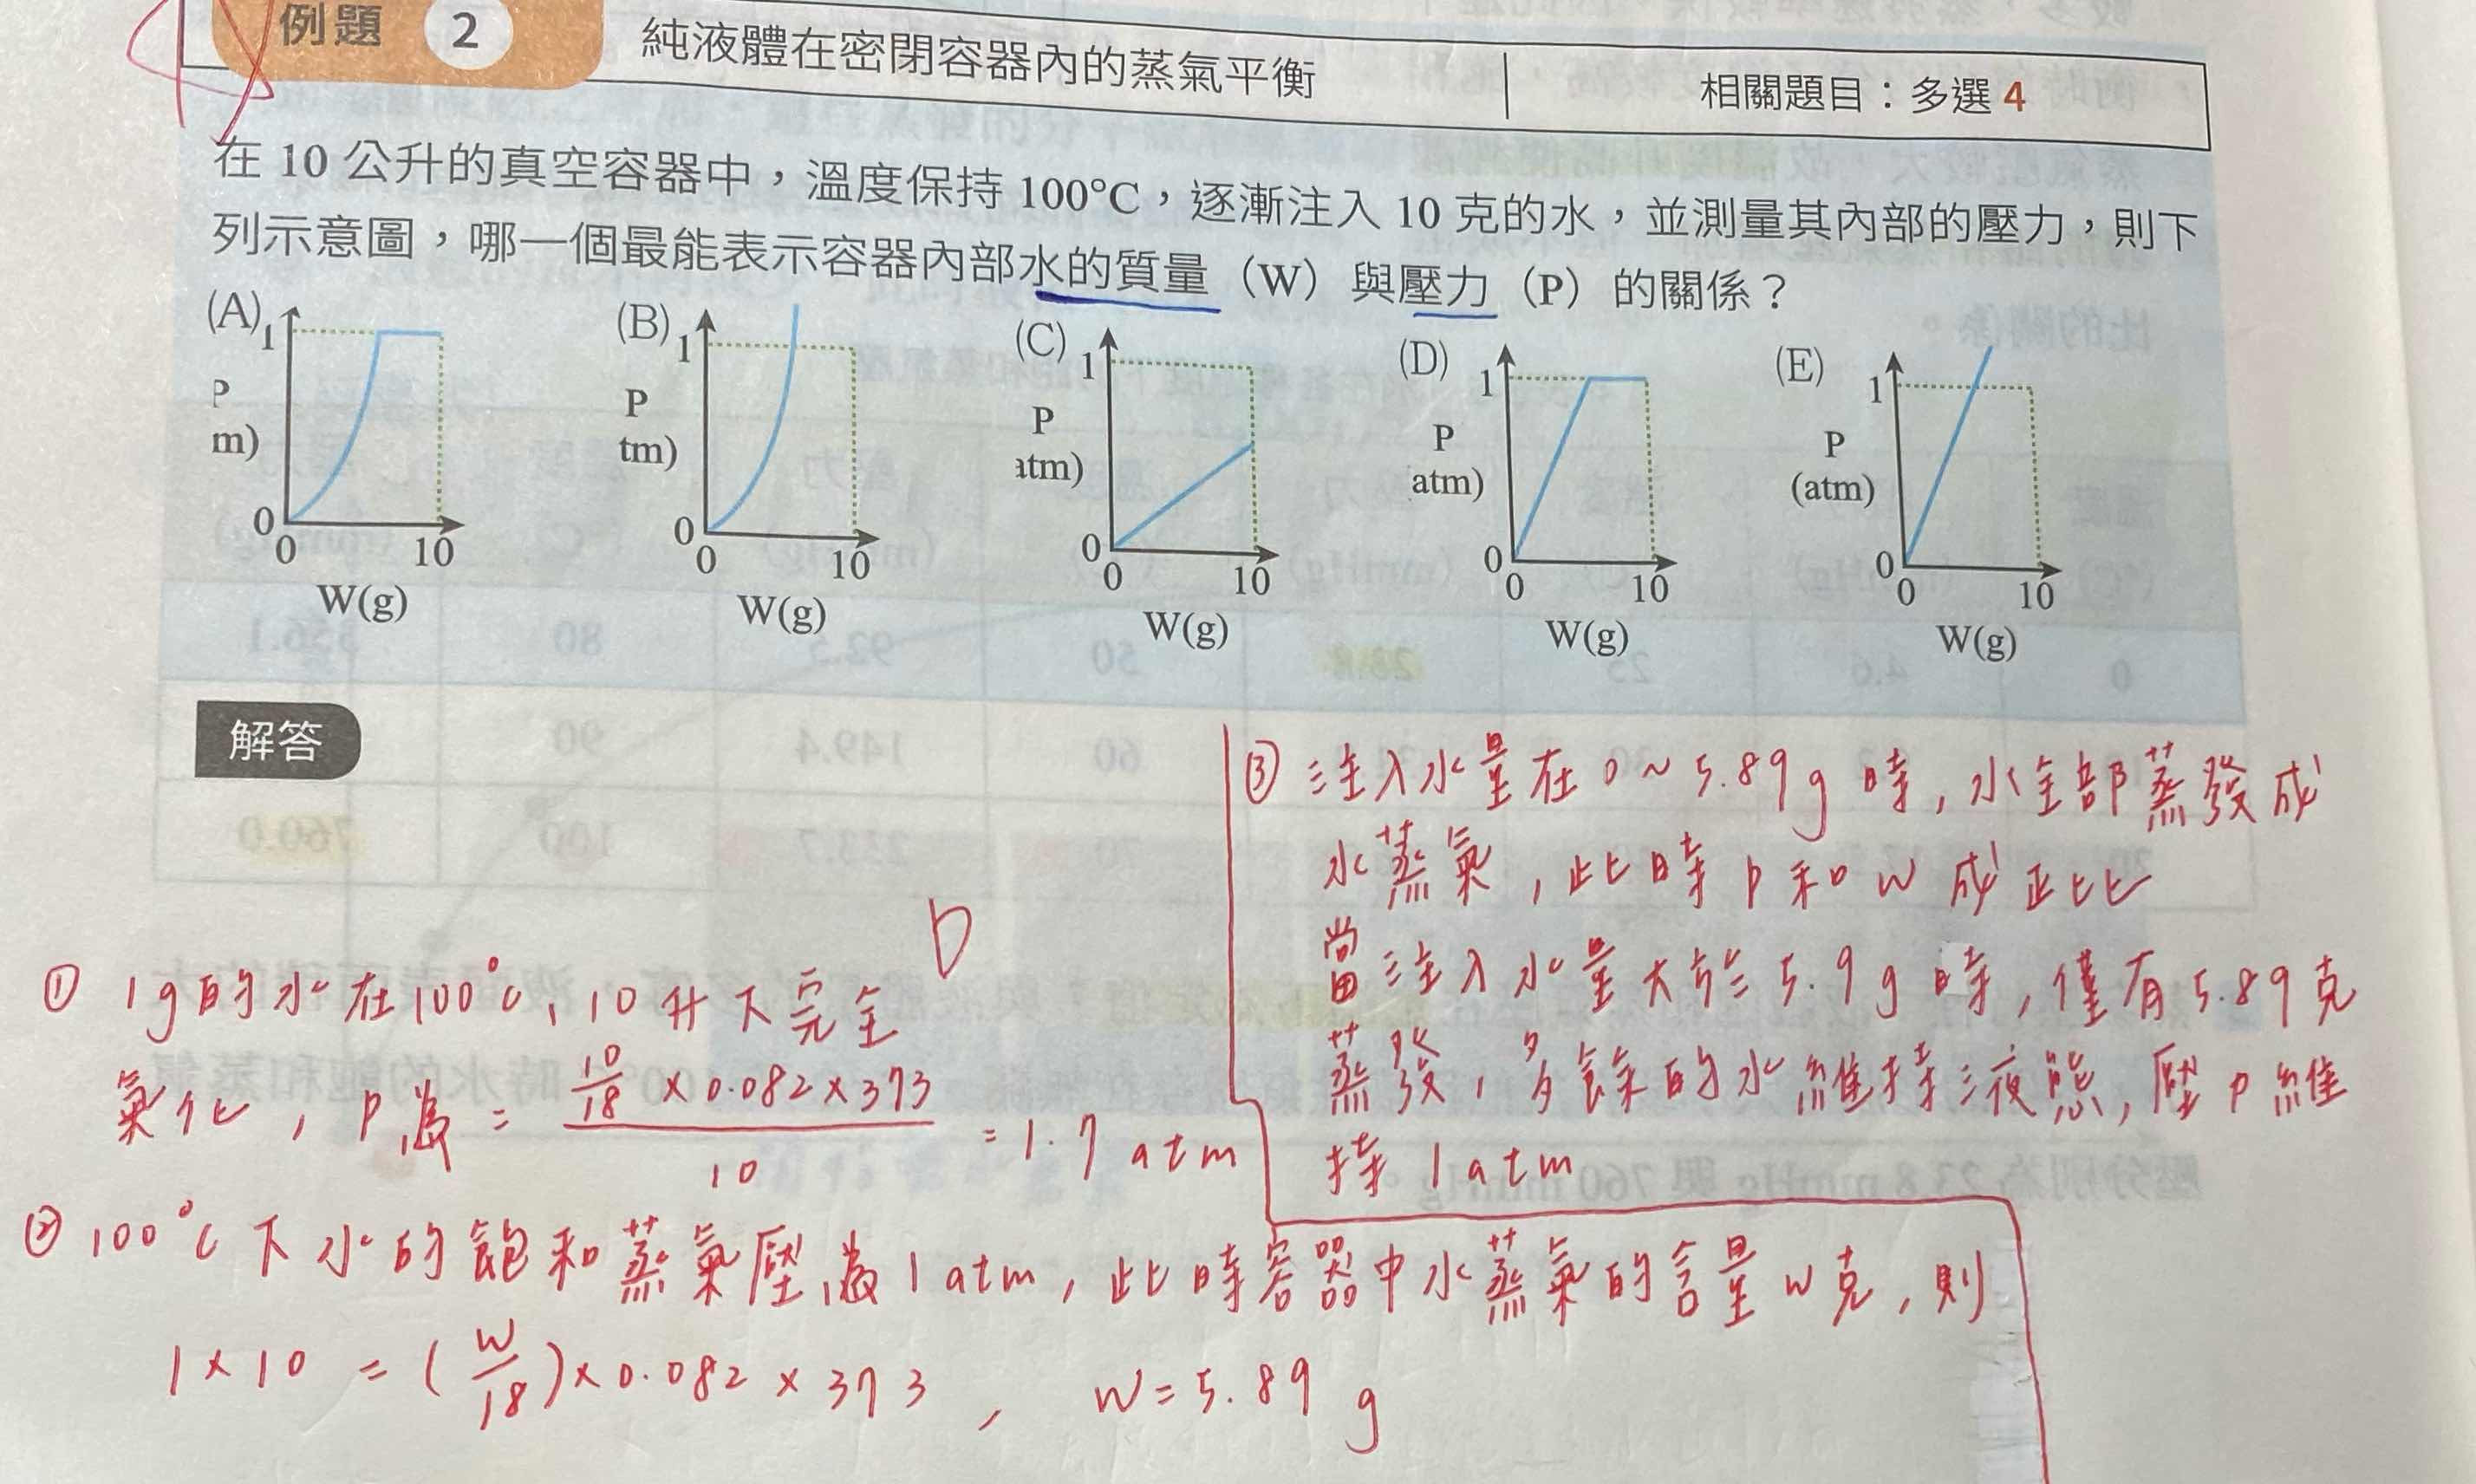 例題 2 純液體在密閉容器內的蒸氣平衡 相關題目：多選 4
在 10 公升的真空容器中，溫度保持 100°C，逐漸注入 10 克的水，並測量其內部的壓力，則下
列示意圖，哪一個最能表示容器內部水的質量（W）與壓力（P）的關係？
(A) 1
P
m)
0
0 10
W(g)
(B) 1
P
tm)
0
0 10
W(g)
(C) 1
P
atm)
0
0 10
W(g)
(D) 1
P
atm)
0
0 10
W(g)
(E) 1
P
(atm)
0
0 10
W(g)
解答
D
① 1g的水在100°C，10升下完全
氣化，P為 = 10/18 × 0.082 × 373 / 10 = 1.7 atm
② 100°C下水的飽和蒸氣壓為1atm，此時容器中水蒸氣的含量W克，則
1 × 10 = (W/18) × 0.082 × 373， W = 5.89 g
③ 注入水量在0~5.89g時，水全部蒸發成
水蒸氣，此時P和W成正比
當注入水量大於5.9g時，僅有5.89克
蒸發，多餘的水維持液態，壓P維
持1atm